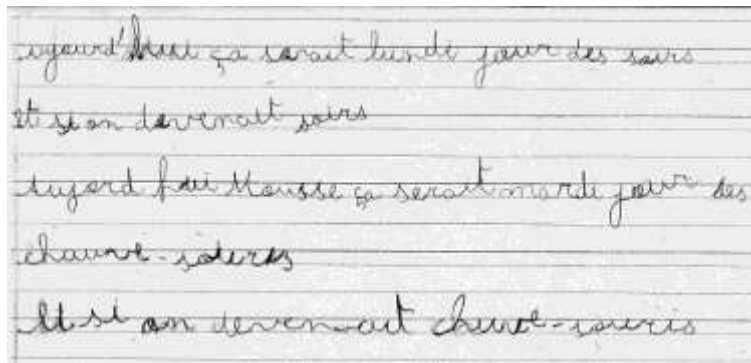 aujourd'hui ça serait lundi jour des soirs
et si on devenait soirs
aujord hui Mousse ça serait mardi jour des
chauve-souris
Et si on devenait chuve-souris